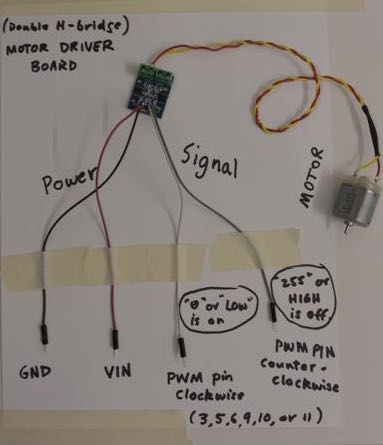 (Double H-bridge)
MOTOR DRIVER
BOARD
Power
Signal
MOTOR
"0" or "LOW"
is on
"255" or
HIGH
is off
GND
VIN
PWM pin
clockwise
(3,5,6,9,10, or 11)
PWM PIN
counter-
clockwise